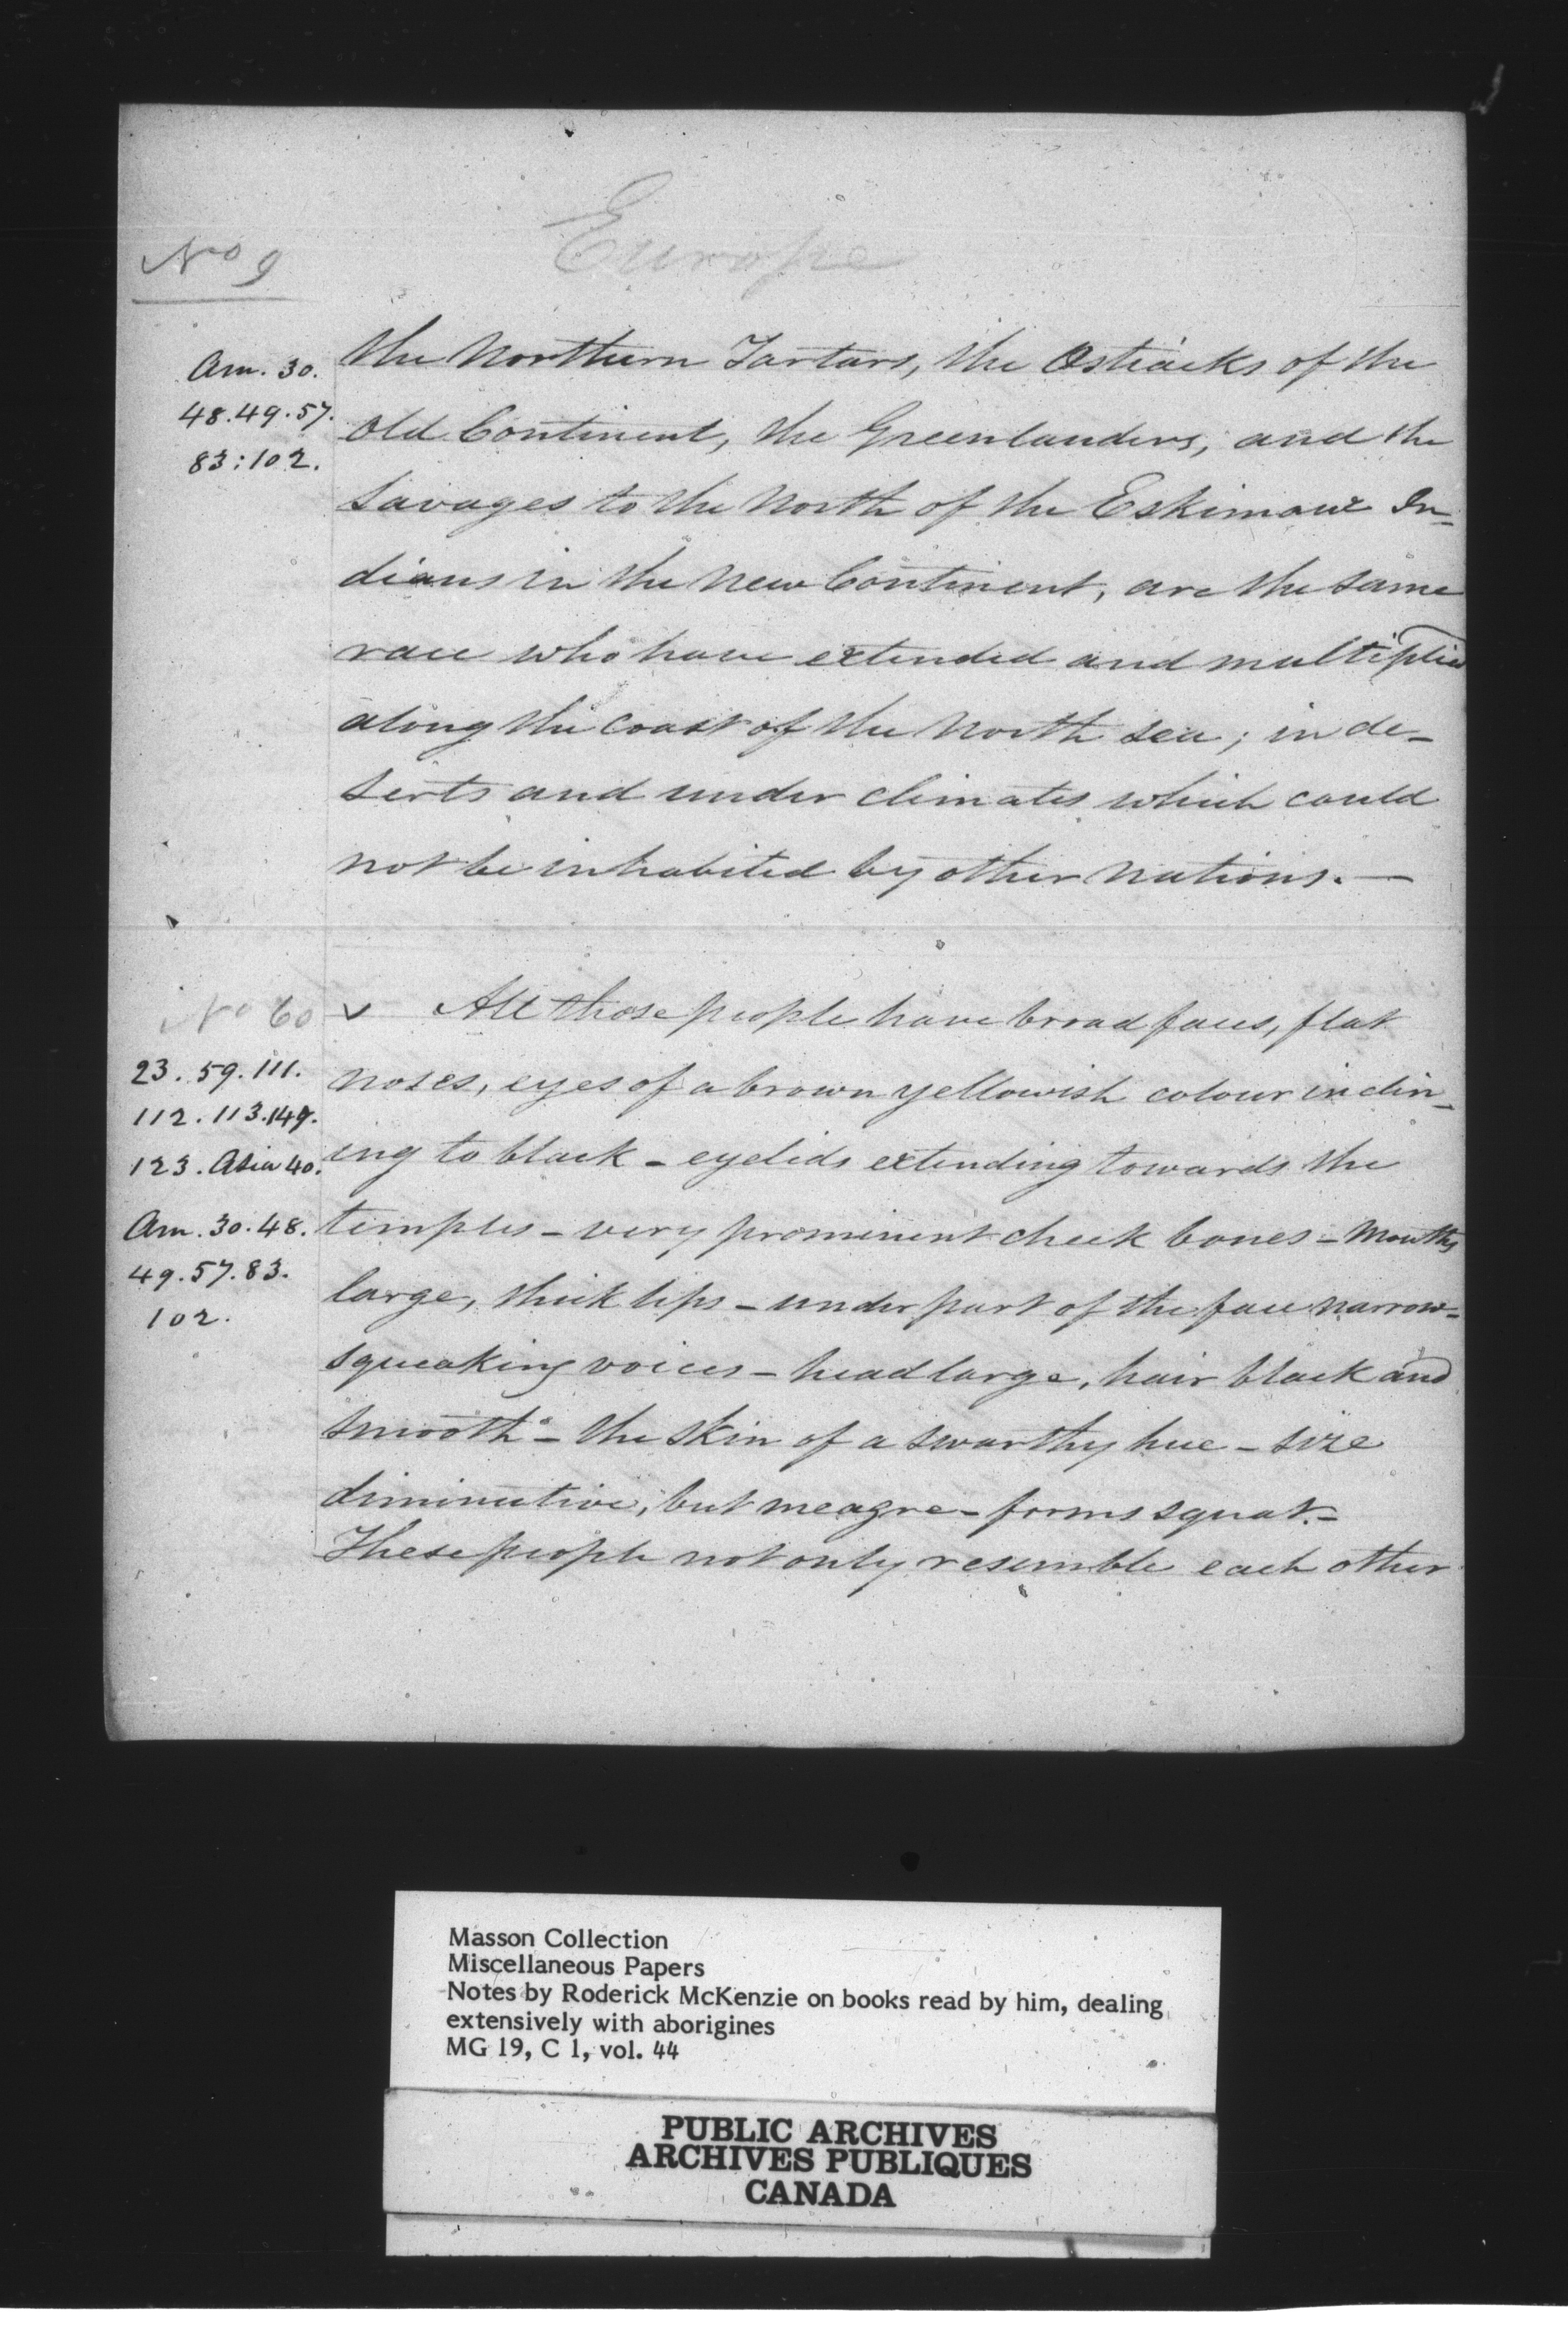 Europe
No 9
Am. 30.
48.49.57.
83:102.
the Northern Tartars, the Ostiacks of the
Old Continent, the Greenlanders, and the
Savages to the North of the Eskimaux In-
dians in the New Continent, are the same
race who have extended and multiplied
along the coast of the North sea; in de-
serts and under climates which could
not be inhabited by other nations.—
No 60
23. 59. 111.
112. 113. 149.
123. Asia 40.
Am. 30. 48.
49. 57. 83.
102.
v All those people have broad faces, flat
noses, eyes of a brown yellowish colour inclin-
ing to black - eyelids extending towards the
temples - very prominent cheek bones - Mouths
large, thick lips - under part of the face narrow -
squeaking voices - head large, hair black and
smooth - the skin of a swarthy hue - size
diminutive, but meagre - forms squat. -
These people not only resemble each other
Masson Collection
Miscellaneous Papers
Notes by Roderick McKenzie on books read by him, dealing
extensively with aborigines
MG 19, C 1, vol. 44
PUBLIC ARCHIVES
ARCHIVES PUBLIQUES
CANADA